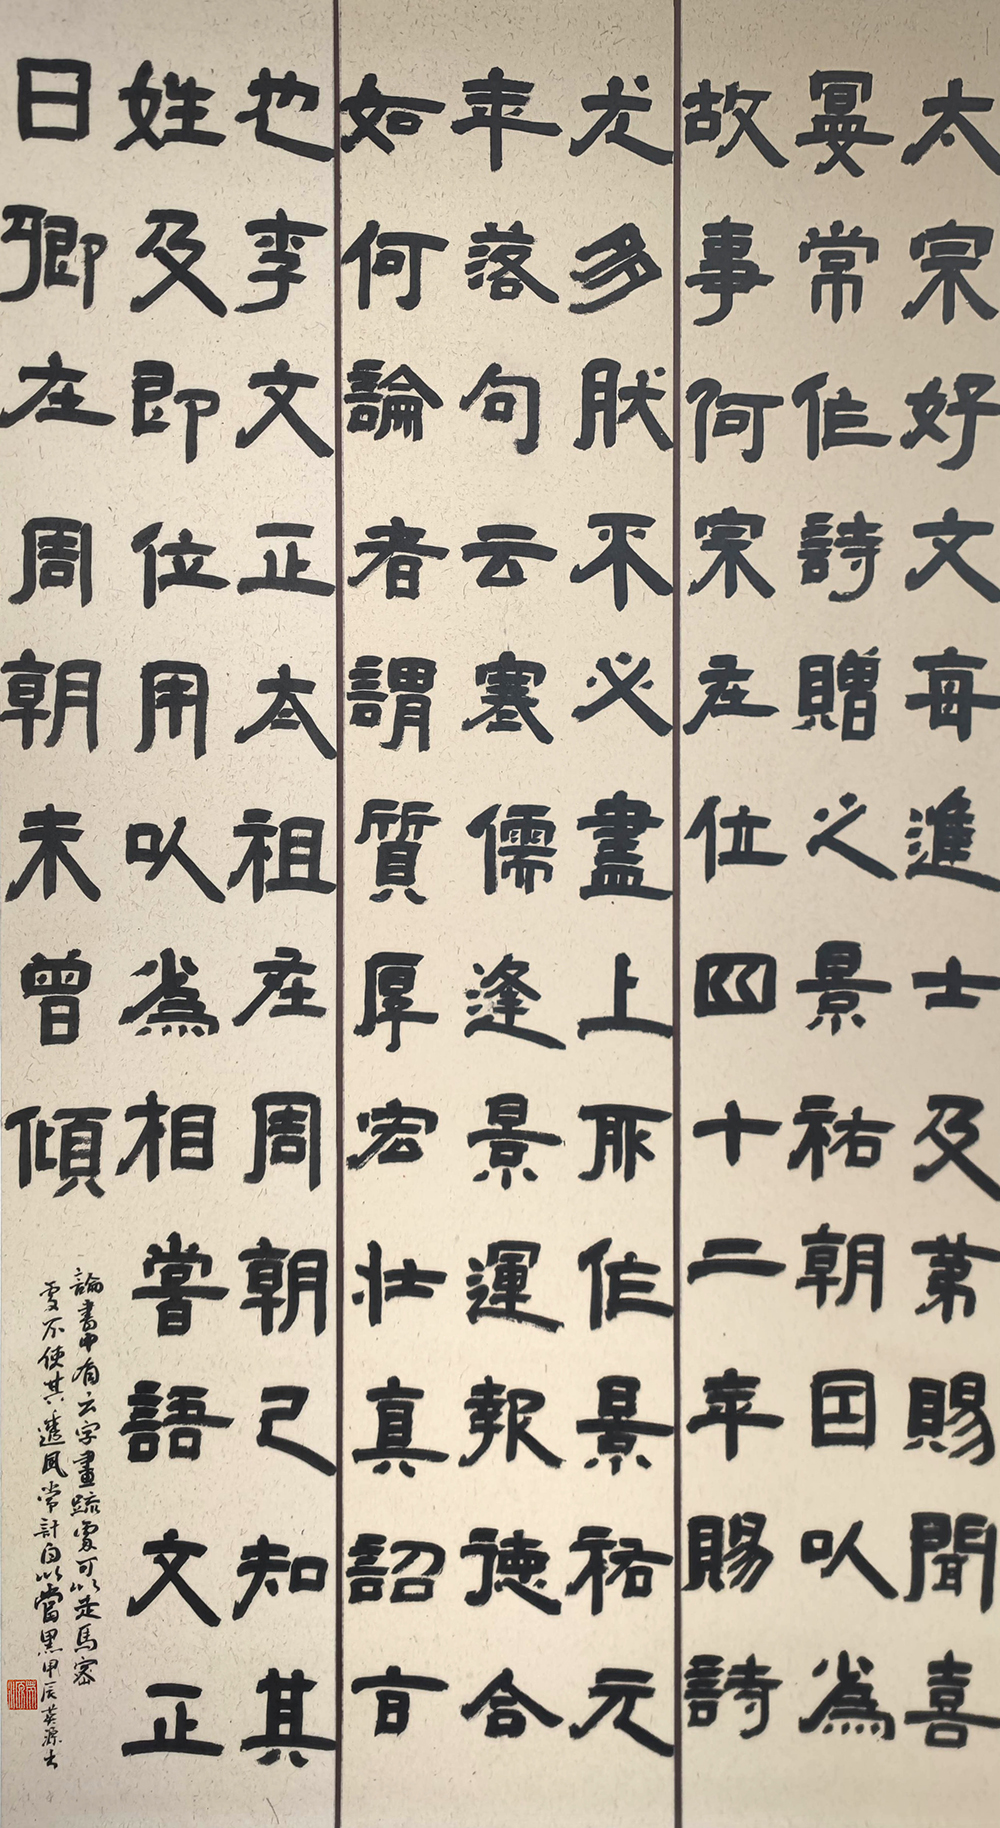 太宗好文每進士及第賜聞喜
宴常作詩贈之景祐朝因以為
故事仁宗在位四十二年賜詩
尤多然不必盡上所作景祐元
年落句云寒儒逢景運報德合
如何論者謂質厚宏壯真詔言
也李文正太祖在周朝已知其
姓及即位用以為相嘗語文正
日卿在周朝未曾傾
論書中有云字畫疏處可以走馬密
處不使其透風常計白以當黑甲辰英源書